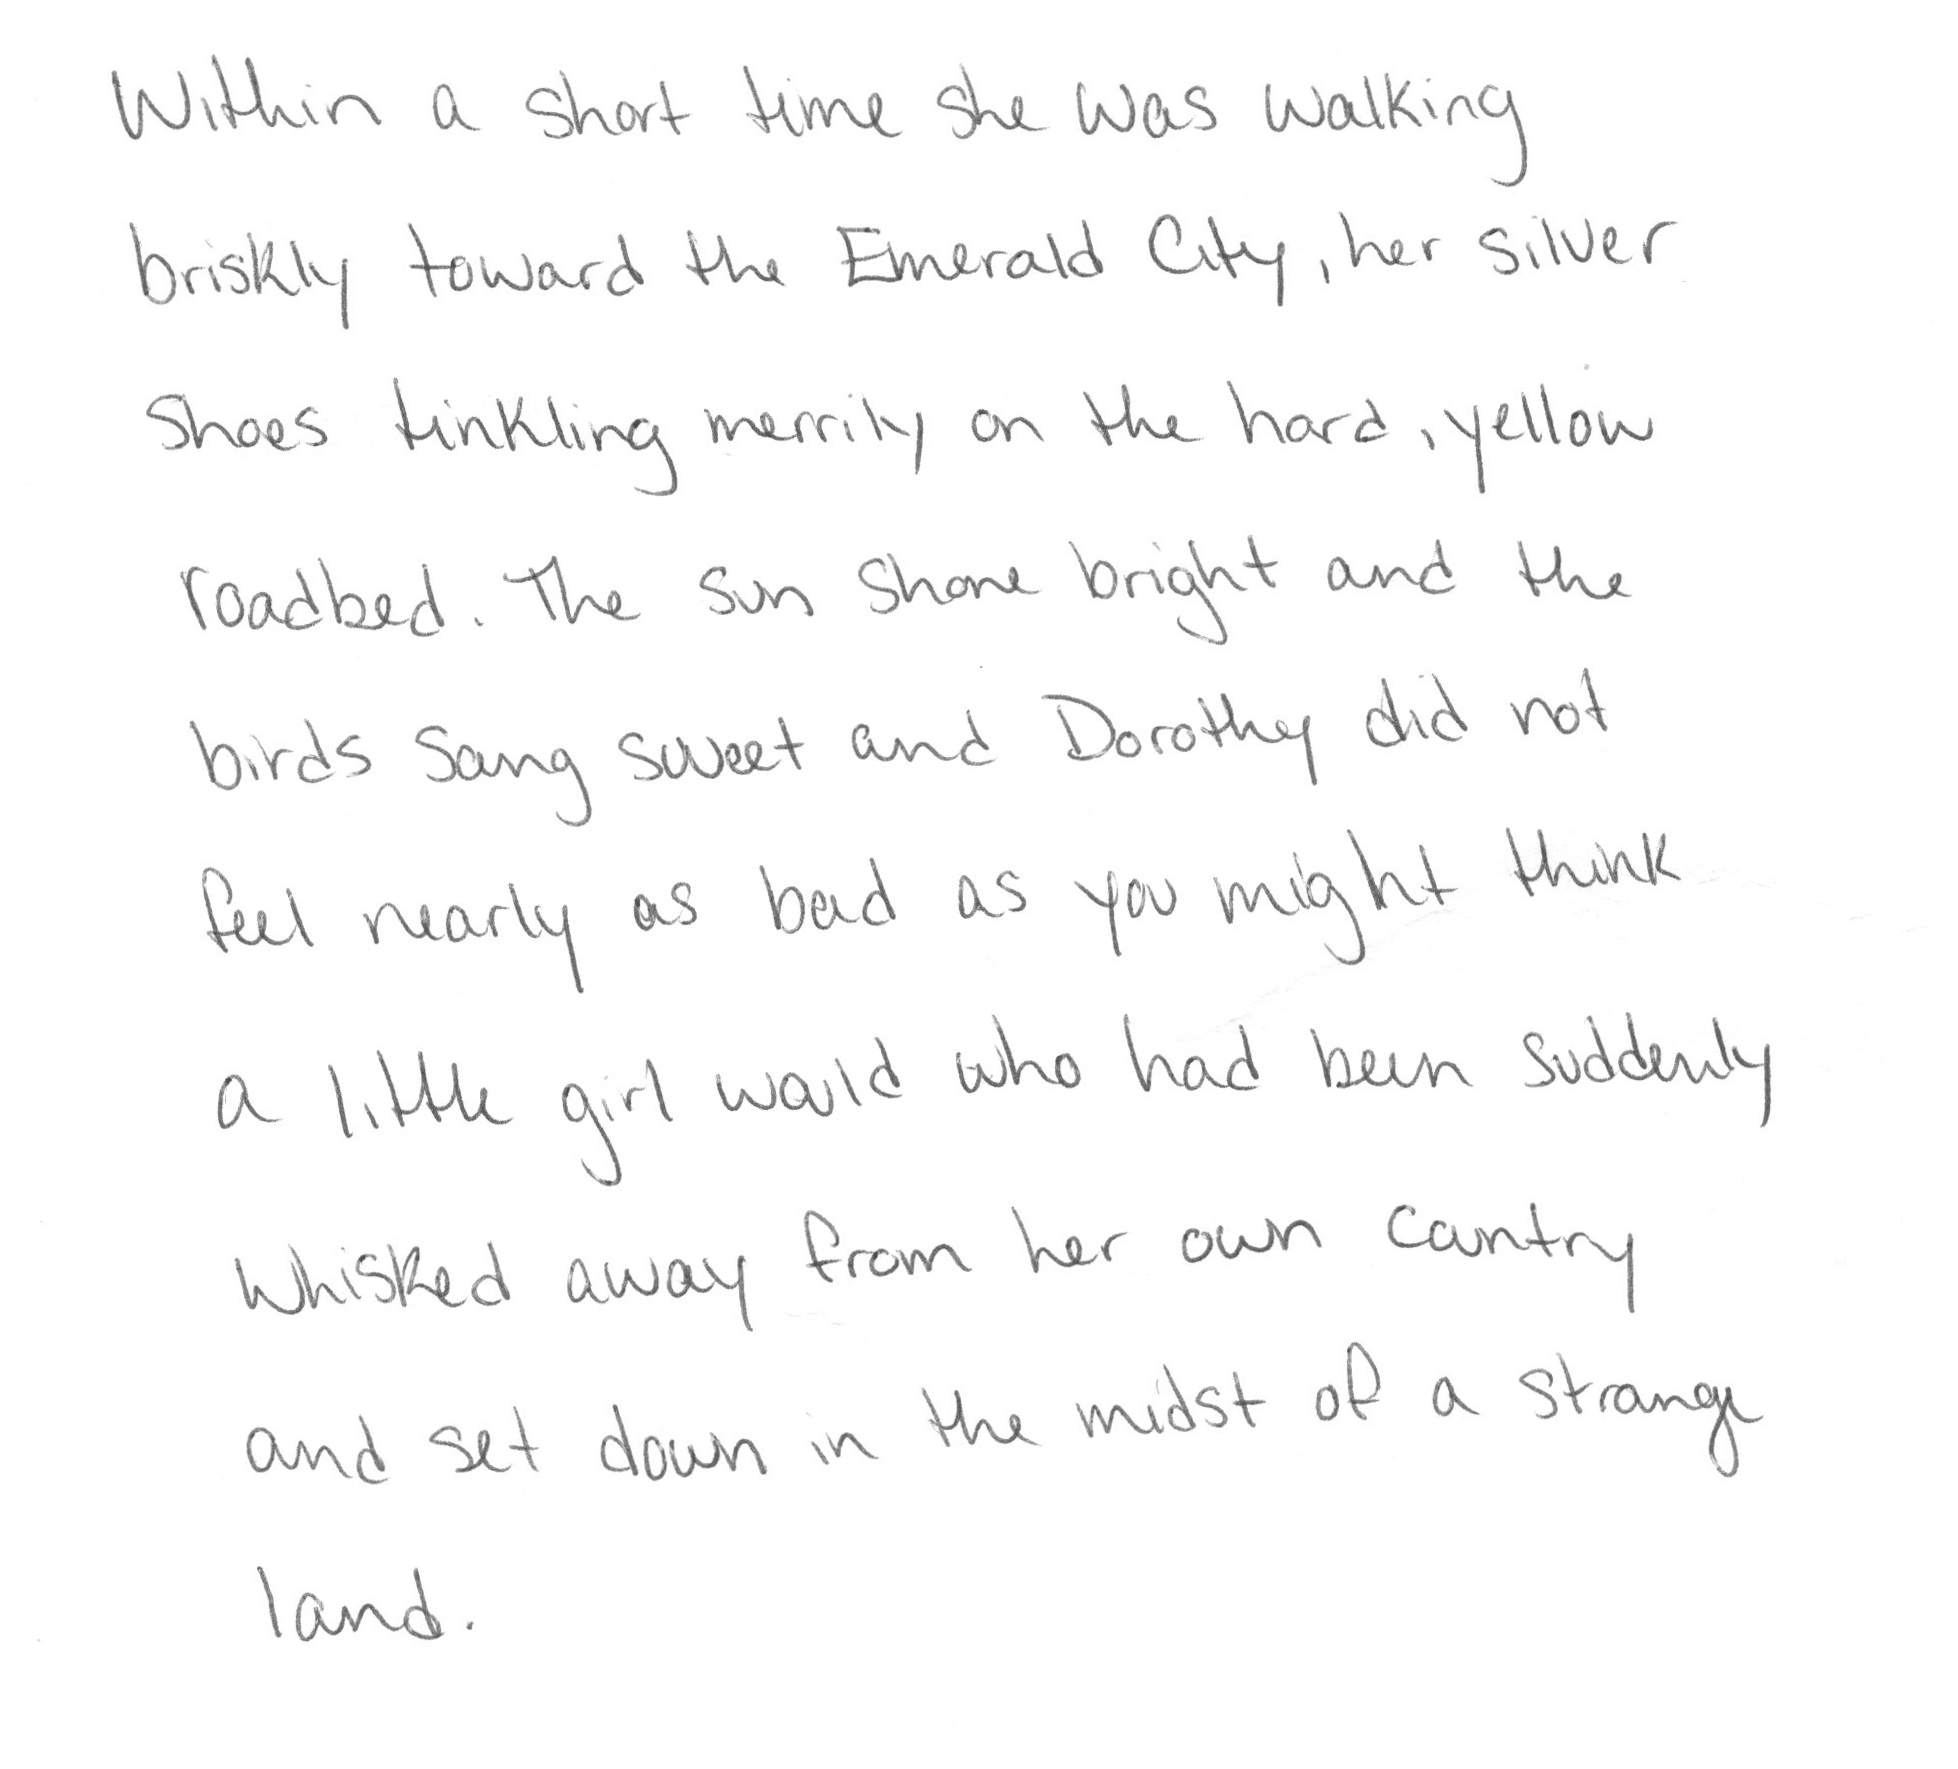 Within a short time she was walking
briskly toward the Emerald City, her silver
shoes tinkling merrily on the hard, yellow
roadbed. The sun shone bright and the
birds sang sweet and Dorothy did not
feel nearly as bad as you might think
a little girl would who had been suddenly
whisked away from her own country
and set down in the midst of a strange
land.